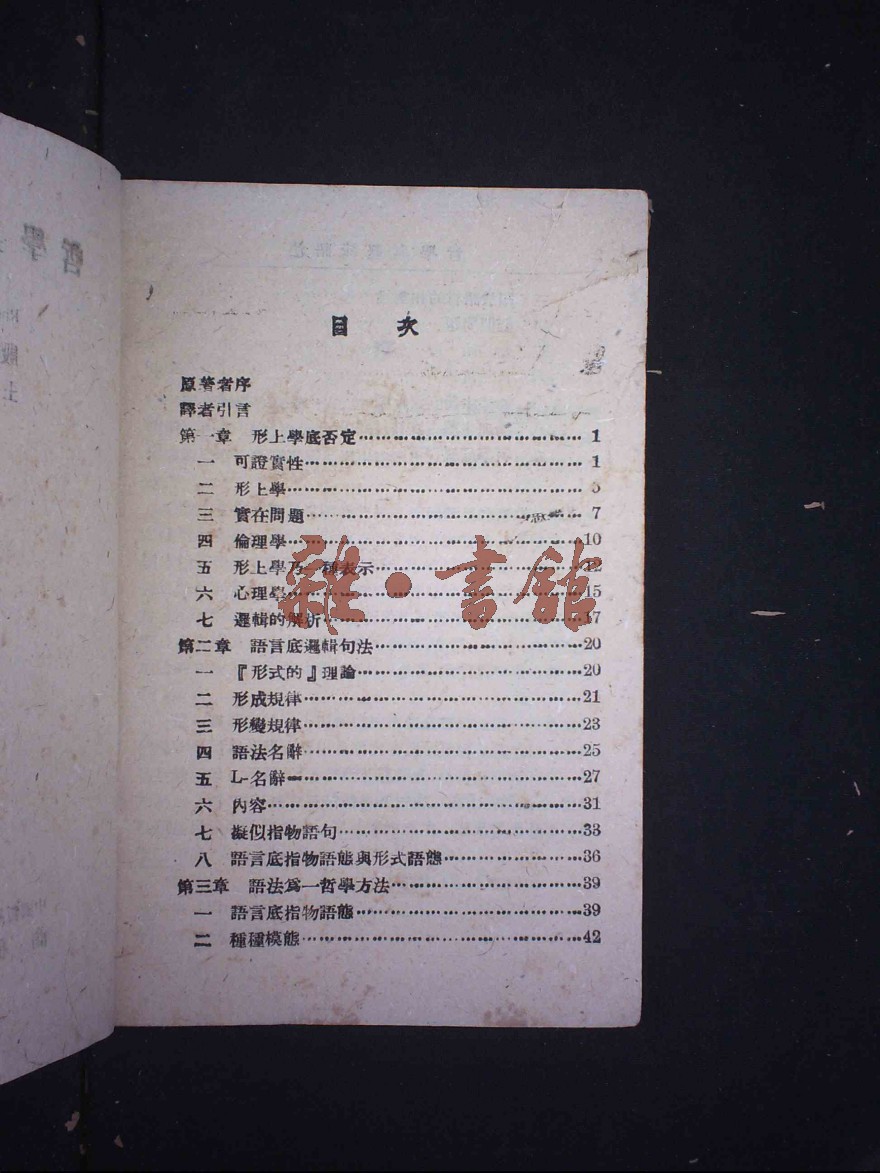 目 次
原著者序
譯者引言
第一章 形上學底否定……………………… 1
一 可證實性……………………… 1
二 形上學………………………
三 實在問題……………………… 7
四 倫理學………………………10
五 形上學乃一種表示………………………12
六 心理學………………………15
七 邏輯的解析………………………17
第二章 語言底邏輯句法………………………20
一 『形式的』理論………………………20
二 形成規律………………………21
三 形變規律………………………23
四 語法名辭………………………25
五 L-名辭………………………27
六 內容………………………31
七 擬似指物語句………………………33
八 語言底指物語態與形式語態………………………36
第三章 語法爲一哲學方法………………………39
一 語言底指物語態………………………39
二 種種模態………………………42
雜·書館